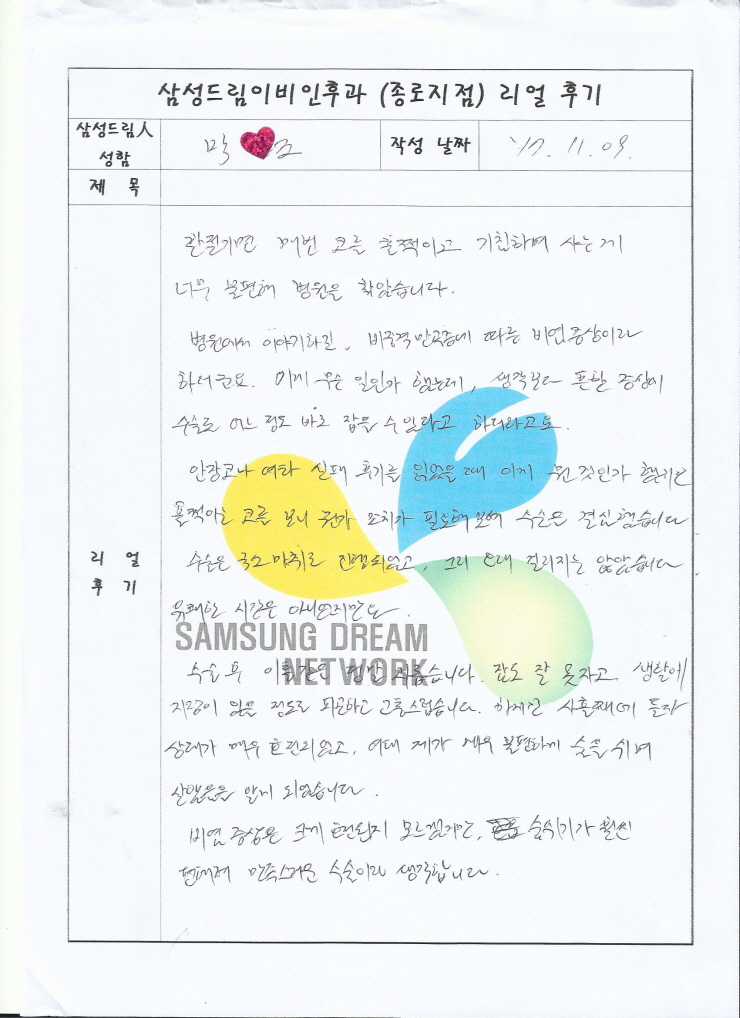 삼성드림이비인후과 (종로지점) 리얼 후기
삼성드림人 성함
작성 날짜 '17. 11. 09.
제 목
리 얼 후 기
환절기면 매번 코를 훌쩍이고 기침하며 사는게
너무 불편해 병원을 찾았습니다.
병원에서 이야기하길, 비중격만곡증에 따른 비염증상이라
하더군요. 이게 무슨 일인가 했는데, 생각보다 흔한 증상에
수술로 어느 정도 바로 잡을 수 있다고 하더라고요.
안장코나 여타 실패 후기를 읽었을 때 이게 뭔 것인가 했지만
훌쩍이는 코를 보니 뭔가 조치가 필요해 보여 수술은 결심했습니다
수술은 국소마취로 진행되었고, 그리 오래 걸리지는 않았습니다
유쾌한 시간은 아니었지만요.
SAMSUNG DREAM
NETWORK
수술 후 이틀간은 정말 습니다. 잠도 잘 못자고, 생활에
지장이 있을 정도로 피곤하고 고통스럽습니다. 하지만 사흘째에 들자
상태가 매우 호전되었고, 여태 제가 매우 불편하게 숨을 쉬며
살았음을 알게 되었습니다.
비염 증상은 크게 호전된지 모르겠지만, 숨쉬기가 훨씬
편해져 만족스러운 수술이라 생각합니다.